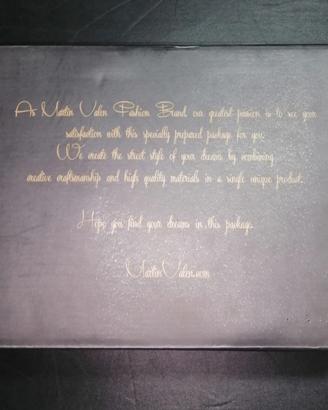 As Martin Valen Fashion Brand our greatest passion is to see your
satisfaction with this specially prepared package for you.
We create the street style of your dreams by combining
creative craftsmanship and high quality materials in a single unique product.
Hope you find your dreams in this package.
MartinValen.com